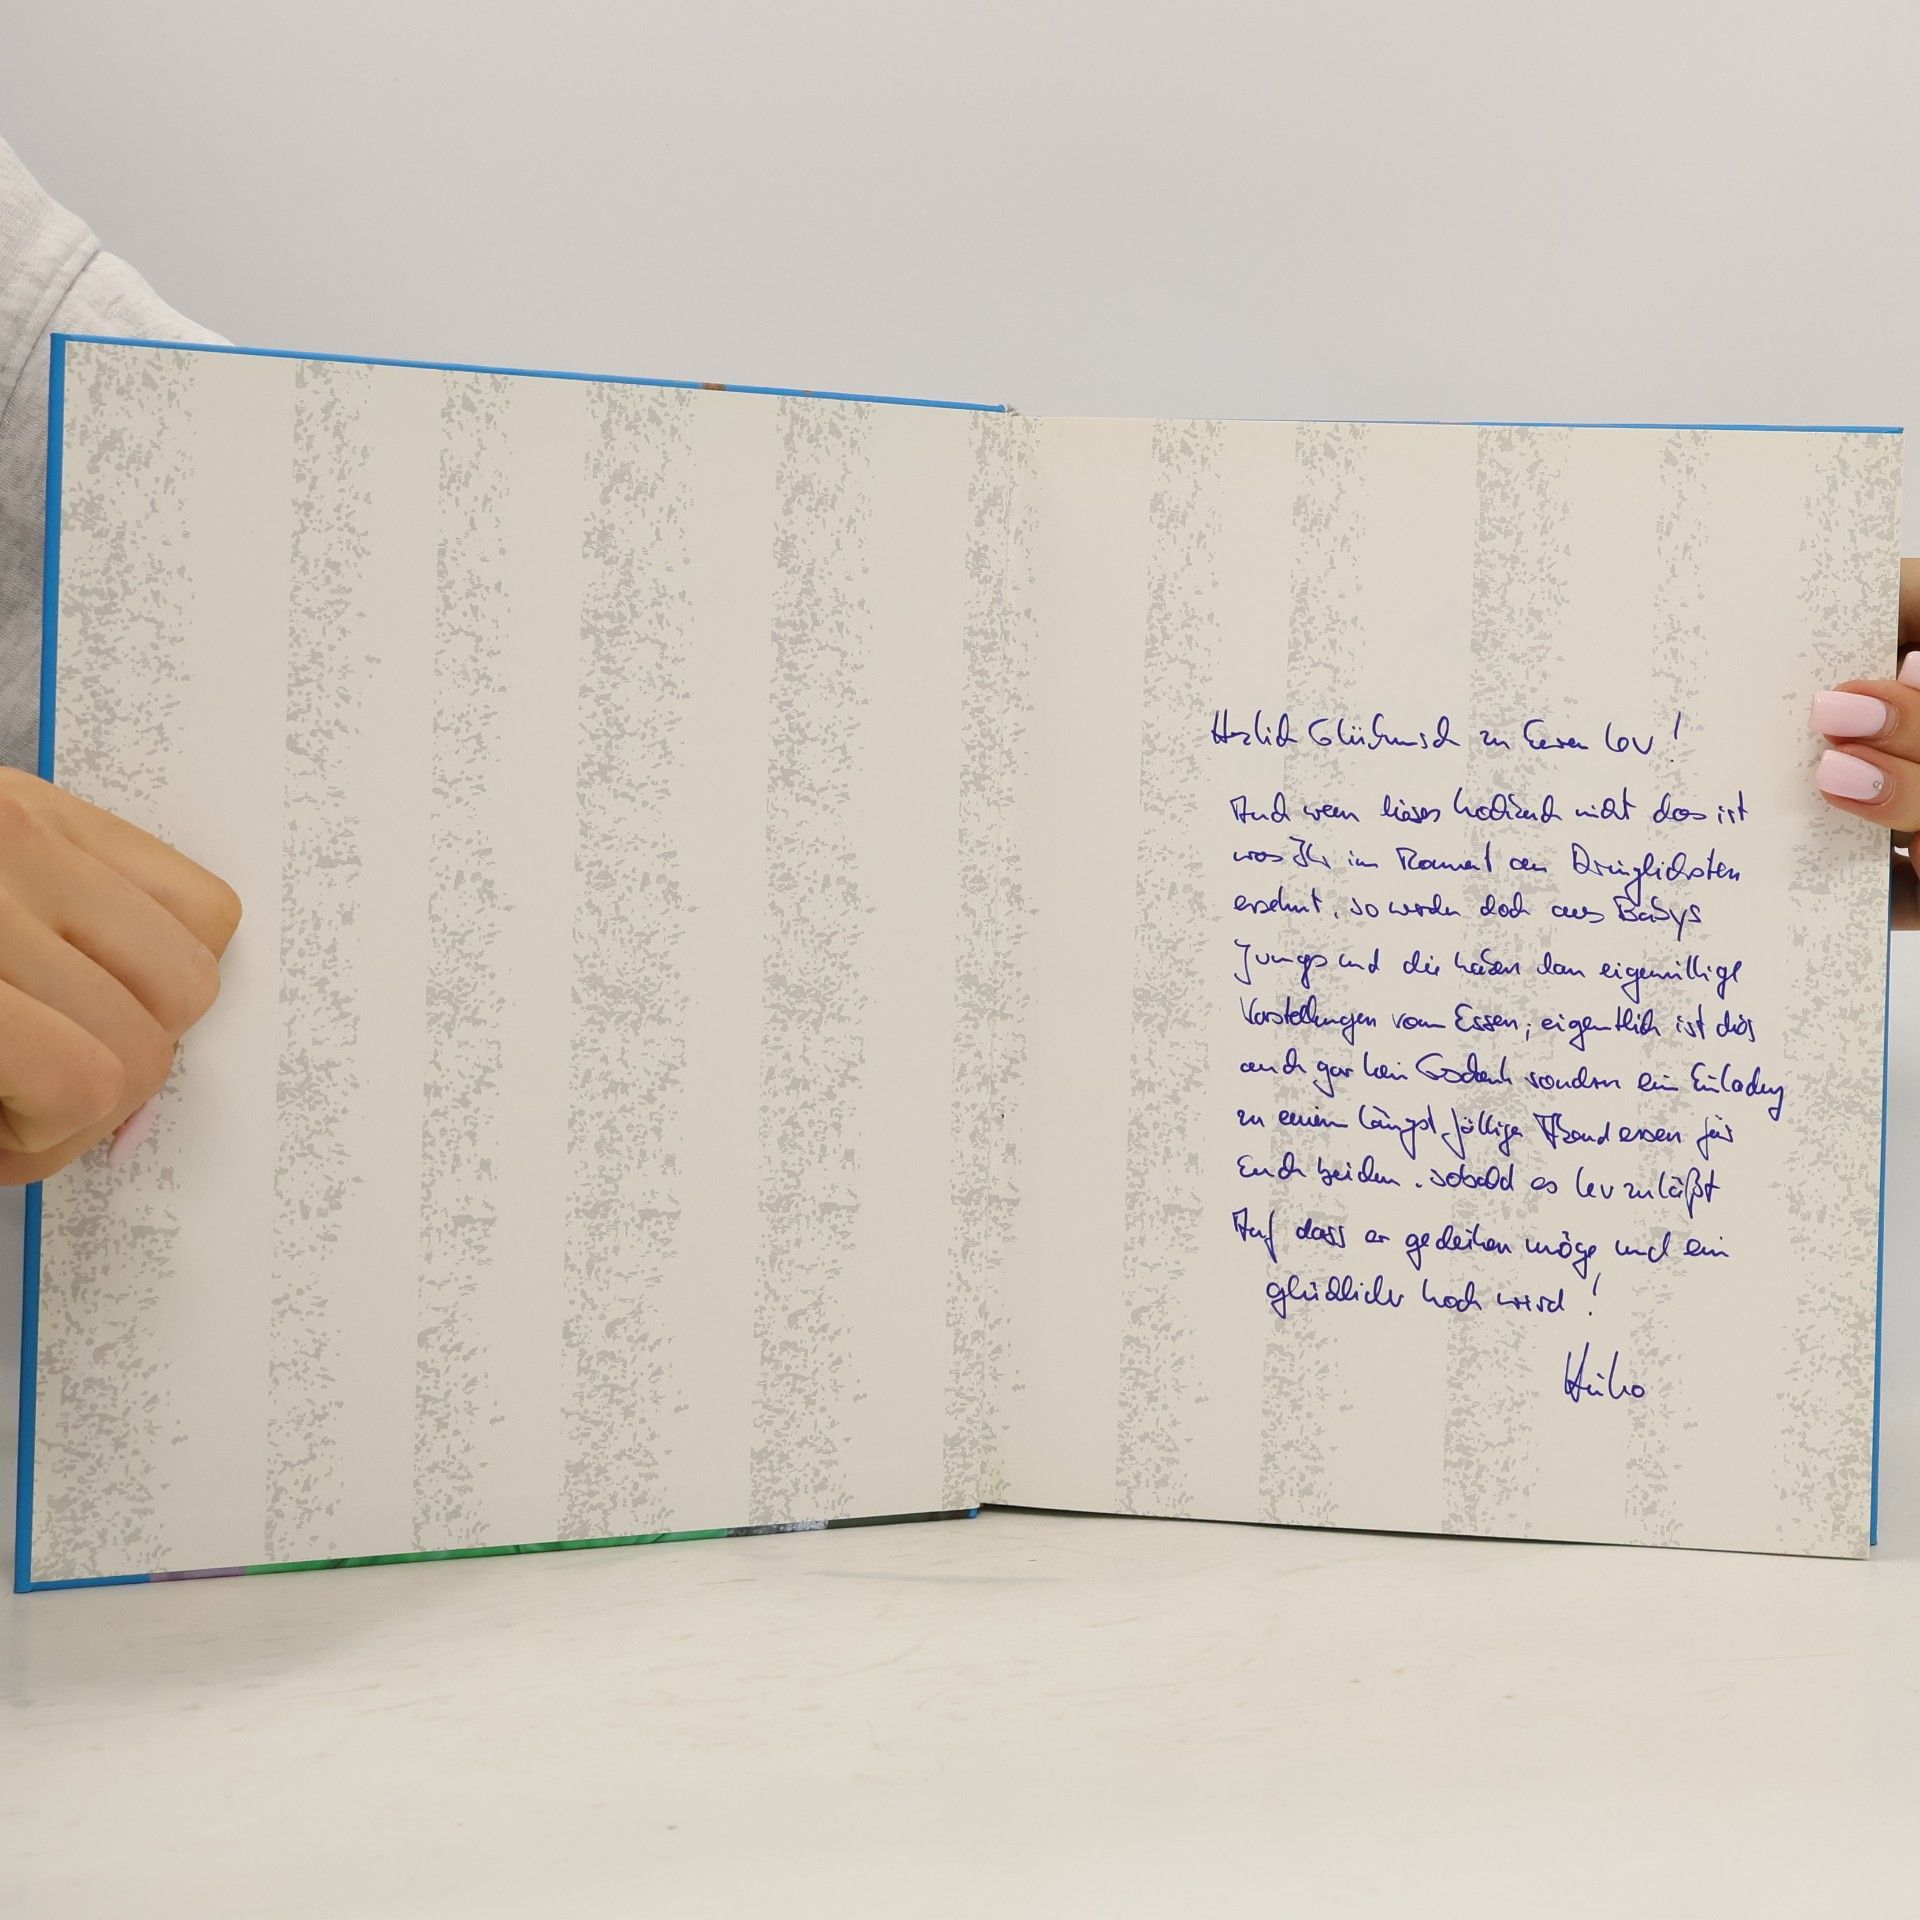 Herzlich Glückwunsch zu Euren Lev!
Auch wenn dieses Kochbuch nicht das ist
was Ihr im Moment am Dringlichsten
ersehnt, so werden doch aus Babys
Jungs und die haben dann eigenwillige
Vorstellungen vom Essen; eigentlich ist dies
auch gar kein Geschenk sondern ein Einladung
zu einem längst fällige Abendessen für
Euch beiden, sobald es Lev zuläßt
Auf dass er gedeihen möge und ein
glücklicher Koch wird!
Heiko